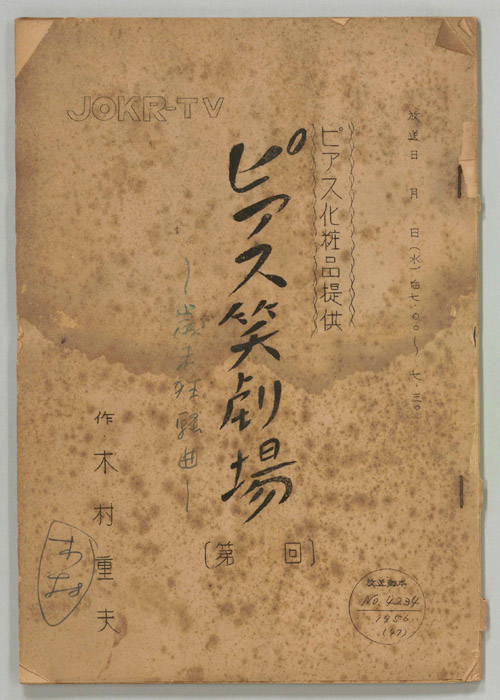 JOKR-TV
放送日 月 日(水)后七・〇〇～七・三〇
ピアス化粧品提供
ピアス笑劇場
～歳末狂騒曲～
〔第 回〕
作・木村重夫
放送台本
NO. 4234
1956